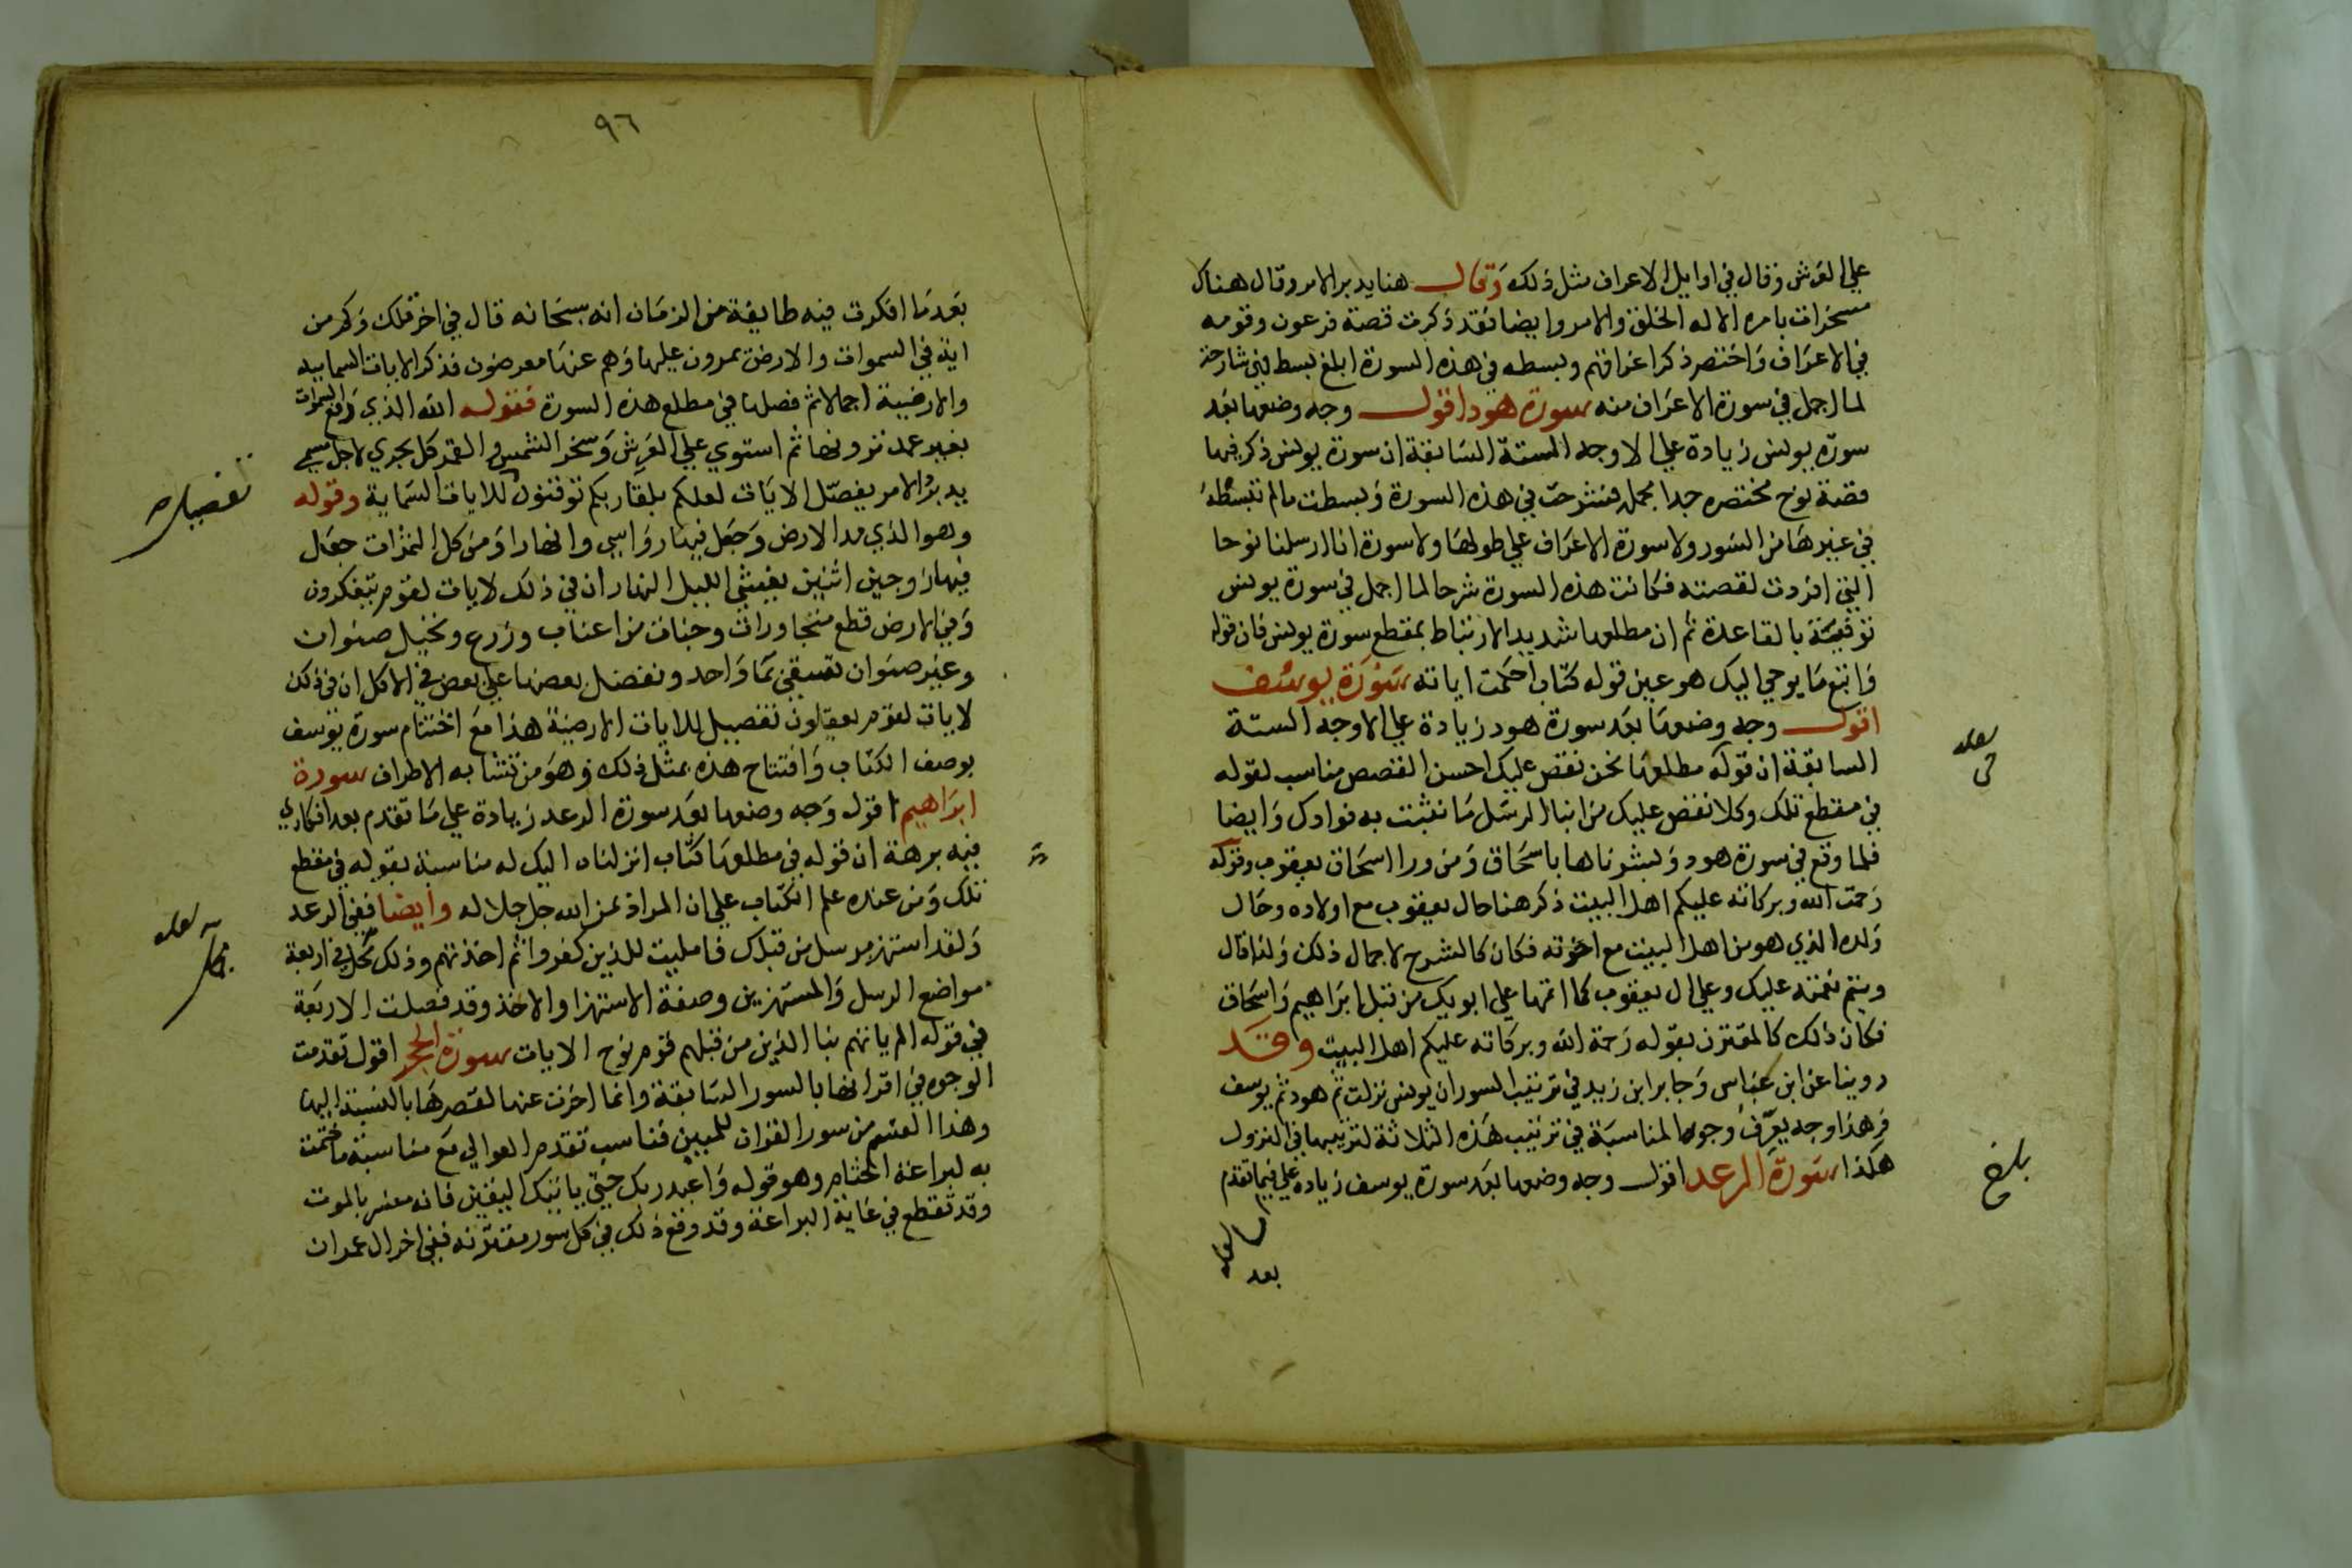 علي العرش وقال في اوايل الاعراف مثل ذلك وقال هنا يدبر الامر وقال هناك
مسخرات بامره الا له الخلق والامر وايضا فقد ذكرت قصة فرعون وقومه
في الاعراف واختصر ذكر اغراقهم وبسطه في هذه السورة ابلغ بسط فهي شارحة
لما اجمل في سورة الاعراف منه سورة هود اقول وجه وضعها بعد
سورة يونس زيادة علي الاوجه الستة السابقة ان سورة يونس ذكر فيها
قصة نوح مختصره جدا مجمله فشرحت في هذه السورة وبسطت مالم تبسطه
في غيرها من السور ولا سورة الاعراف علي طولها ولا سورة انا ارسلنا نوحا
التي افردت لقصته فكانت هذه السورة شرحا لما اجمل في سورة يونس
توفية بالقاعدة ثم ان مطلعها شديد الارتباط بمقطع سورة يونس فان قوله
واتبع ما يوحي اليك هو عين قوله كتاب احكمت اياته سورة يوسف
اقول وجه وضعها بعد سورة هود زيادة علي الاوجه الستة
السابقة ان قوله مطلعها نحن نقص عليك احسن القصص مناسب لقوله
في مقطع تلك وكلا نقص عليك من انبا الرسل ما نثبت به فوادك وايضا
فلما وقع في سورة هود وبشرناها باسحاق ومن ورا اسحاق يعقوب وقوله
رحمت الله وبركاته عليكم اهل البيت ذكر هنا حال يعقوب مع اولاده وحال
ولده الذي هو من اهل البيت مع اخوته فكان كالشرح لاجمال ذلك ولذا قال
ويتم نعمته عليك وعلي ال يعقوب كما اتمها علي ابويك من قبل ابراهيم واسحاق
فكان ذلك كالمقترن بقوله رحمة الله وبركاته عليكم اهل البيت وقد
روينا عن ابن عباس وجابر ابن زيد في ترتيب السور ان يونس نزلت ثم هود ثم يوسف
وهذا وجه يعرف وجوه المناسبة في ترتيب هذه الثلاثة لترتيبها في النزول
هكذا سورة الرعد اقول وجه وضعها بعد سورة يوسف زيادة علي فيما تقدم
لعله
في
بلغ
لعله
بعد
٩٦
بعد ما افكرت فيه طايفة من الزمان انه سبحانه قال في اخر تلك وكم من
اية في السموات والارض يمرون عليها وهم عنها معرضون فذكر الايات السماييه
والارضية اجمالا ثم فصلها في مطلع هذه السورة فقوله الله الذي رفع السموات
بغير عمد ترونها ثم استوي علي العرش وسخر الشمس والقمر كل يجري لاجل مسمي
يدبر الامر يفصل الايات لعلكم بلقا ربكم توقنون للايات السماية وقوله
وهو الذي مد الارض وجعل فيها رواسي وانهارا ومن كل الثمرات جعل
فيها زوجين اثنين يغشي الليل النهار ان في ذلك لايات لقوم يتفكرون
وفي الارض قطع متجاورات وجنات من اعناب وزرع ونخيل صنوان
وغير صنوان تسقي بما واحد ونفضل بعضها علي بعض في الاكل ان في ذلك
لايات لقوم يعقلون تفصيل للايات الارضية هذا مع اختتام سورة يوسف
بوصف الكتاب وافتتاح هذه بمثل ذلك وهو من تشابه الاطراف سورة
ابراهيم اقول وجه وضعها بعد سورة الرعد زيادة علي ما تقدم بعد افكاري
فيه برهة ان قوله في مطلعها كتاب انزلناه اليك له مناسبة بقوله في مقطع
تلك ومن عنده علم الكتاب علي ان المراد بمن الله جل جلاله وايضا ففي الرعد
ولقد استهزي برسل من قبلك فامليت للذين كفروا ثم اخذتهم وذلك مجمل في اربعة
مواضع الرسل والمستهزين وصفة الاستهزا والاخذ وقد فصلت الاربعة
في قوله الم ياتهم نبا الذين من قبلهم قوم نوح الايات سورة الحجر اقول تقدمت
الوجوه في اقترانها بالسور السابقة وانما اخرت عنها لقصرها بالنسبة اليها
وهذا القسم من سور القران للمبين فناسب تقدم العوالي مع مناسبة ما ختمت
به لبراعة الختام وهو قوله واعبد ربك حتي ياتيك اليقين فانه مفسر بالموت
وقد تقطع في غاية البراعة وقد وقع ذلك في كل سور مقترنه ففي اخر ال عمران
تفصيل
لعله